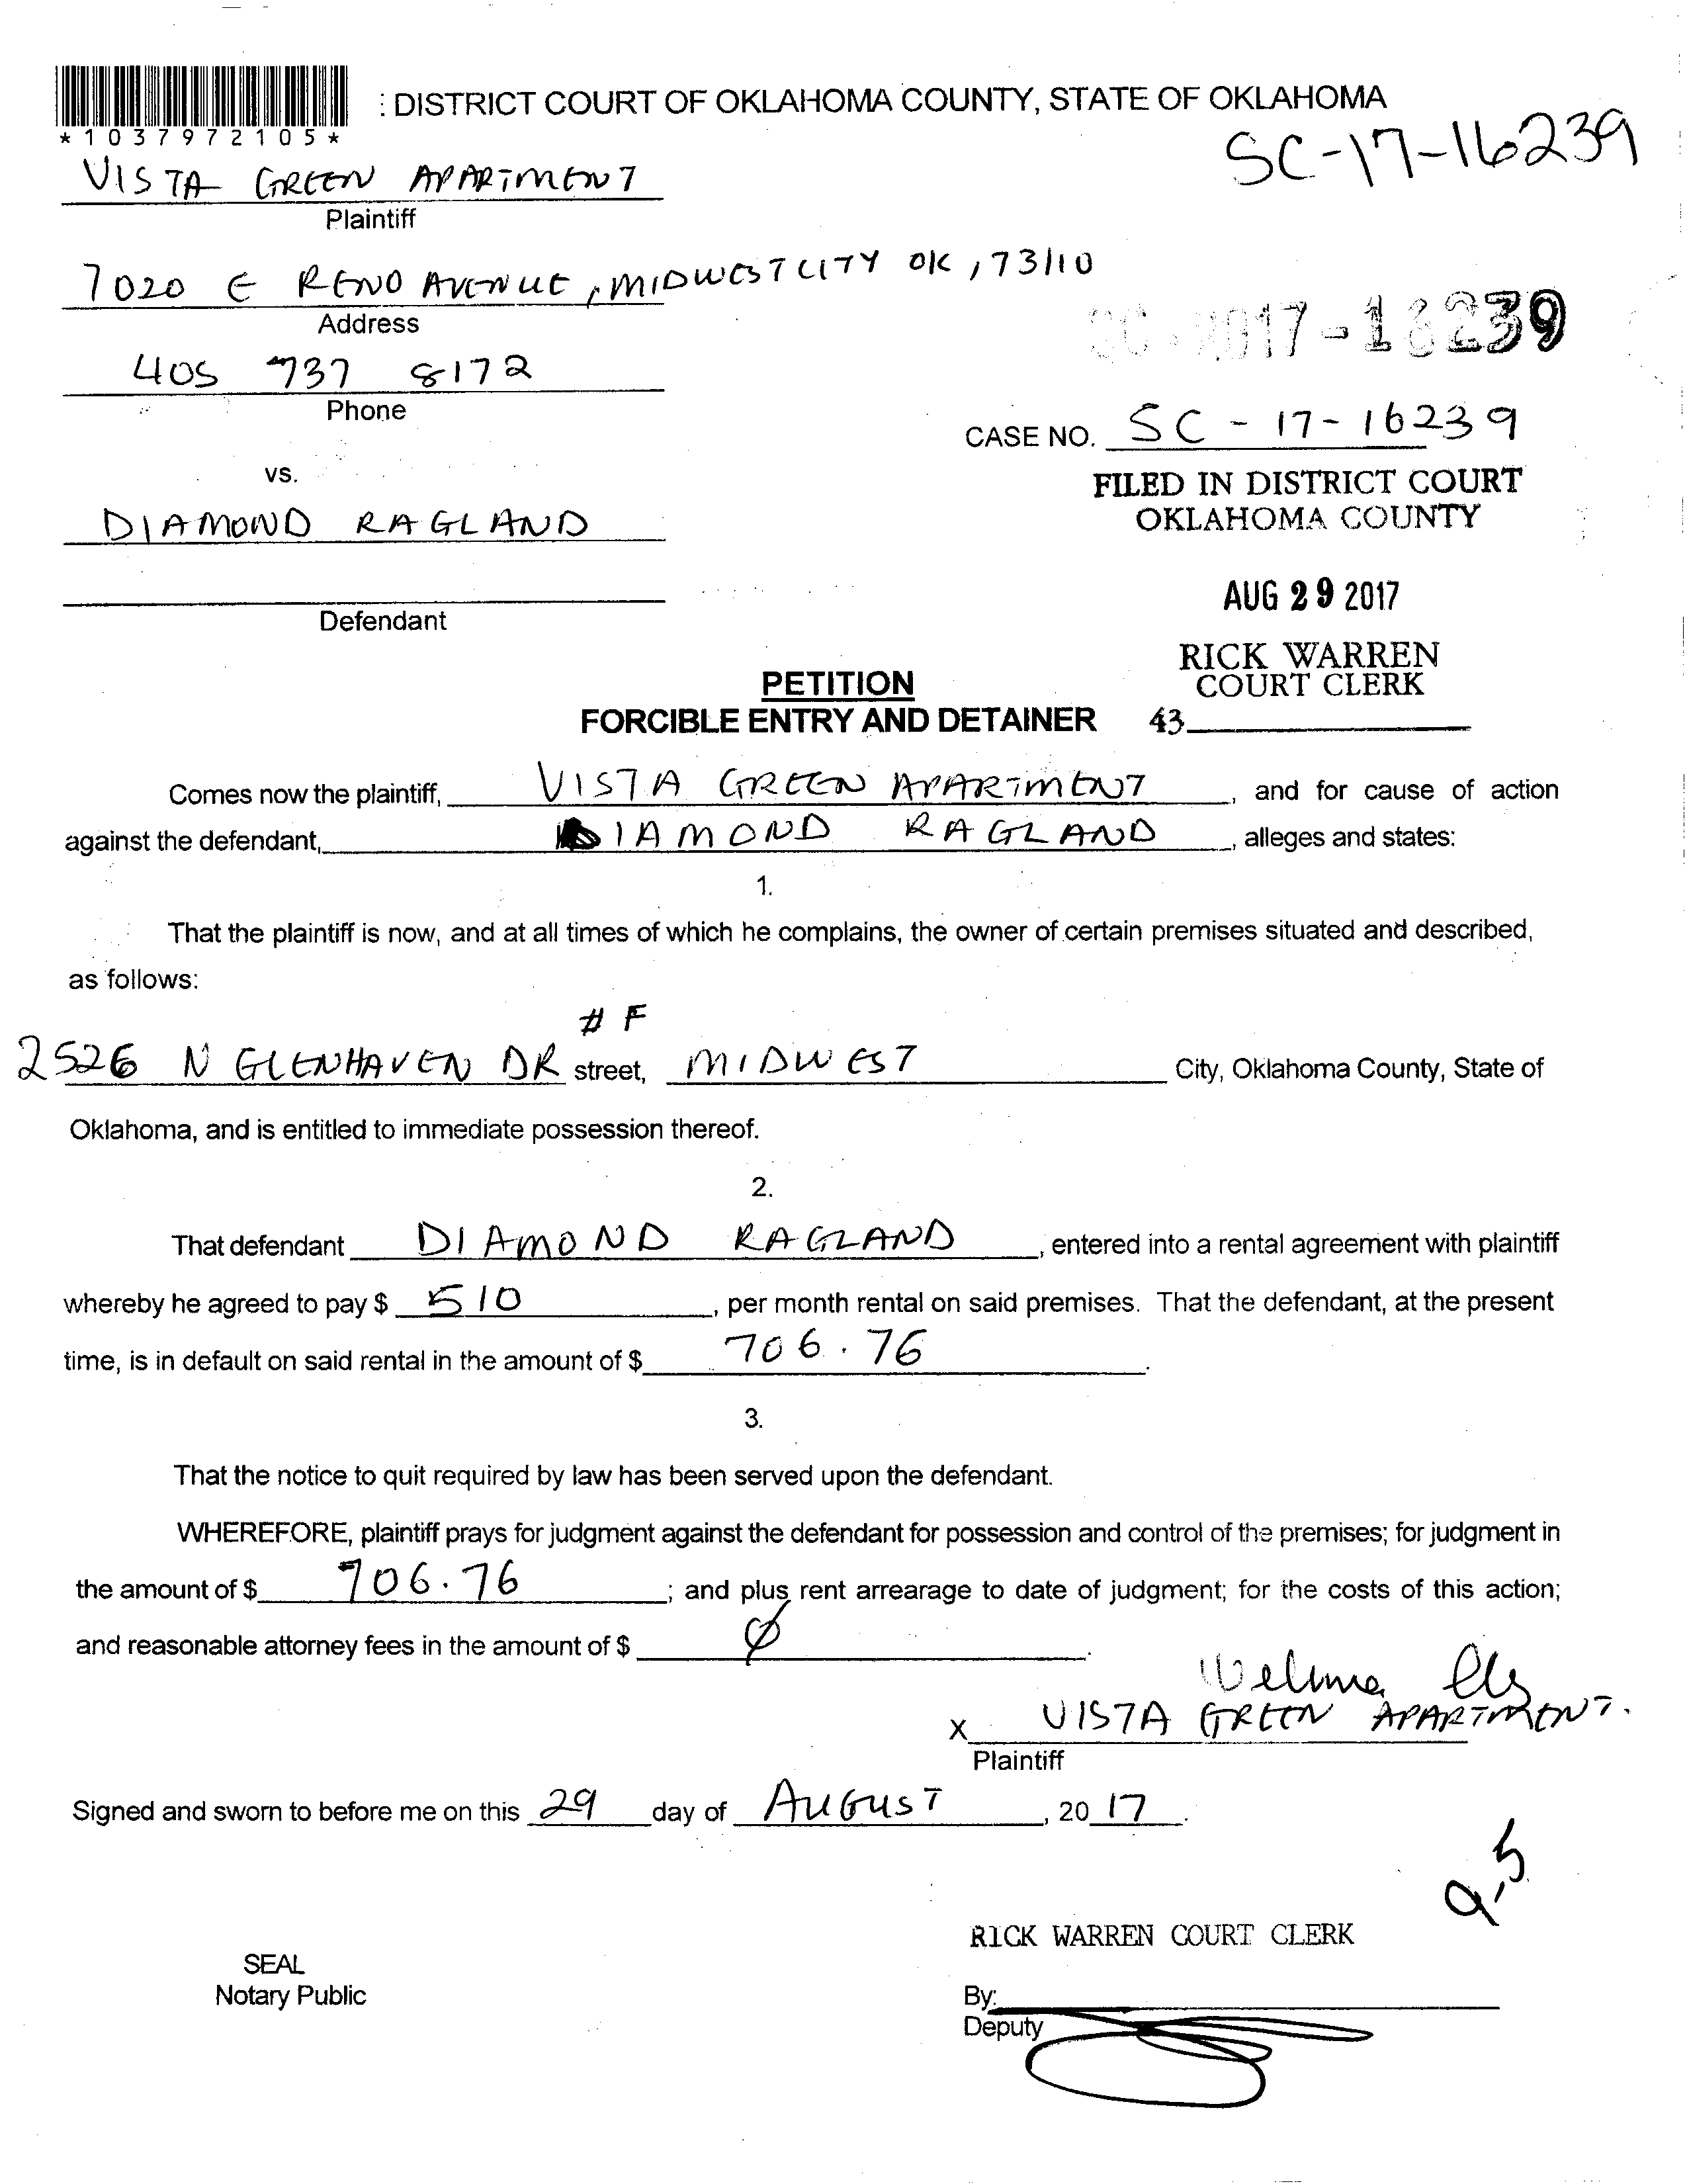 : DISTRICT COURT OF OKLAHOMA COUNTY, STATE OF OKLAHOMA
*1037972105*
SC-17-16239
VISTA GREEN APARTMENT
Plaintiff
7020 E RENO AVENUE, MIDWEST CITY OK, 73110
Address
SC-2017-16239
405 737 8172
Phone
CASE NO. SC-17-16239
vs.
FILED IN DISTRICT COURT
OKLAHOMA COUNTY
DIAMOND RAGLAND
AUG 29 2017
Defendant
RICK WARREN
COURT CLERK
PETITION
FORCIBLE ENTRY AND DETAINER 43
Comes now the plaintiff, VISTA GREEN APARTMENT, and for cause of action
against the defendant, DIAMOND RAGLAND, alleges and states:
1.
That the plaintiff is now, and at all times of which he complains, the owner of certain premises situated and described,
as follows:
# F
2526 N GLENHAVEN DR street, MIDWEST City, Oklahoma County, State of
Oklahoma, and is entitled to immediate possession thereof.
2.
That defendant DIAMOND RAGLAND, entered into a rental agreement with plaintiff
whereby he agreed to pay $ 510, per month rental on said premises. That the defendant, at the present
time, is in default on said rental in the amount of $ 706.76.
3.
That the notice to quit required by law has been served upon the defendant.
WHEREFORE, plaintiff prays for judgment against the defendant for possession and control of the premises; for judgment in
the amount of $ 706.76; and plus rent arrearage to date of judgment; for the costs of this action;
and reasonable attorney fees in the amount of $ Ø.
Welma
X VISTA GREEN APARTMENT.
Plaintiff
Signed and sworn to before me on this 29 day of AUGUST, 20 17.
9-5
RICK WARREN COURT CLERK
SEAL
Notary Public
By:
Deputy